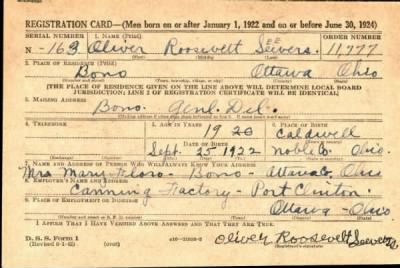 REGISTRATION CARD—(Men born on or after January 1, 1922 and on or before June 30, 1924)
SERIAL NUMBER 1. NAME (Print) ORDER NUMBER
N-163 Oliver Roosevelt Seevers. 11777
(First) (Middle) (Last)
2. PLACE OF RESIDENCE (Print)
Bono Ottawa Ohio
(Number and street) (Town, township, village, or city) (County) (State)
[THE PLACE OF RESIDENCE GIVEN ON THE LINE ABOVE WILL DETERMINE LOCAL BOARD
JURISDICTION; LINE 2 OF REGISTRATION CERTIFICATE WILL BE IDENTICAL]
3. MAILING ADDRESS
Bono. Genl. Del.
4. TELEPHONE 5. AGE IN YEARS 6. PLACE OF BIRTH
19 20 Caldwell
DATE OF BIRTH
Sept. 25 1922 Noble Co. Ohio.
7. NAME AND ADDRESS OF PERSON WHO WILL ALWAYS KNOW YOUR ADDRESS
Mrs Mary - Bono - Ottawa Co, Ohio
8. EMPLOYER'S NAME AND ADDRESS
Canning Factory - Port Clinton.
9. PLACE OF EMPLOYMENT OR BUSINESS
Ottawa - Ohio
I AFFIRM THAT I HAVE VERIFIED ABOVE ANSWERS AND THAT THEY ARE TRUE.
D. S. S. Form 1
Oliver Roosevelt Seevers